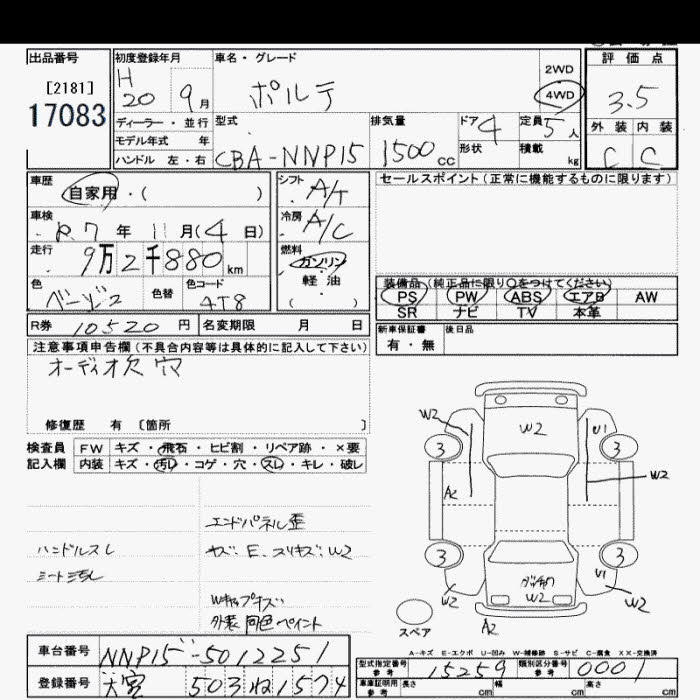 出品番号
[2181]
17083
初度登録年月
H 20 9月
車名・グレード
ポルテ
2WD
4WD
評価点
3.5
外装 内装
C C
ディーラー・並行
モデル年式 年
ハンドル 左・右
型式
CBA-NNP15
排気量
1500cc
ドア 4
形状
定員 5人
積載 kg
車歴
自家用・( )
車検
R7年 11月(4日)
走行
9万2千880km
色
ベージュ2
色替
色コード
4T8
シフト
A/T
冷房
A/C
燃料
ガソリン
軽油
( )
セールスポイント(正常に機能するものに限ります)
装備品(純正品に限り○をつけてください)
PS PW ABS エアB AW
SR ナビ TV 本革
R券 10520円
名変期限 月 日
新車保証書
有・無
後日品
注意事項申告欄(不具合内容等は具体的に記入して下さい)
オーディオ欠 穴
修復歴 有 〔箇所 〕
検査員
記入欄
FW キズ・飛石・ヒビ割・リペア跡・×要
内装 キズ・汚レ・コゲ・穴・スレ・キレ・破レ
エンドパネル歪
ハンドルスレ
キズ・E、スリキズ・W2
シート汚れ
Wキャップキズ
外装同色ペイント
W2
W2
U1
3
3
W2
A2
3
3
W2
W2
U1
W2
A2
スペア
A-キズ E-エクボ U-凹み W-補修跡 S-サビ C-腐食 XX-交換済
車台番号
NNP15-5012251
登録番号
大宮 503ね1574
型式指定番号
参考
15259
類別区分番号
参考
0001
車庫証明用
参考
長さ cm 幅 cm 高さ cm